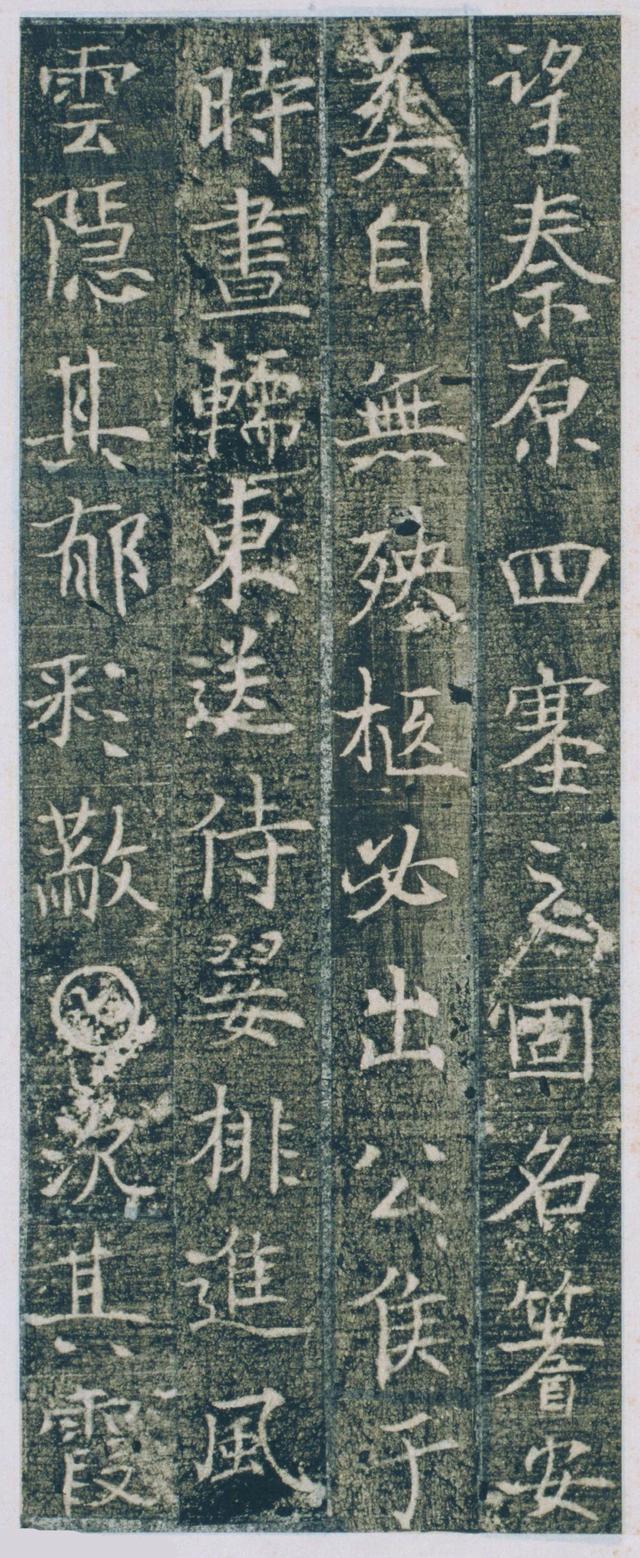 望秦原四塞之固名箸安
葬自無殃柩必出公侯于
時晝轜東送侍翣排進風
雲隱其郁彩散次其霞